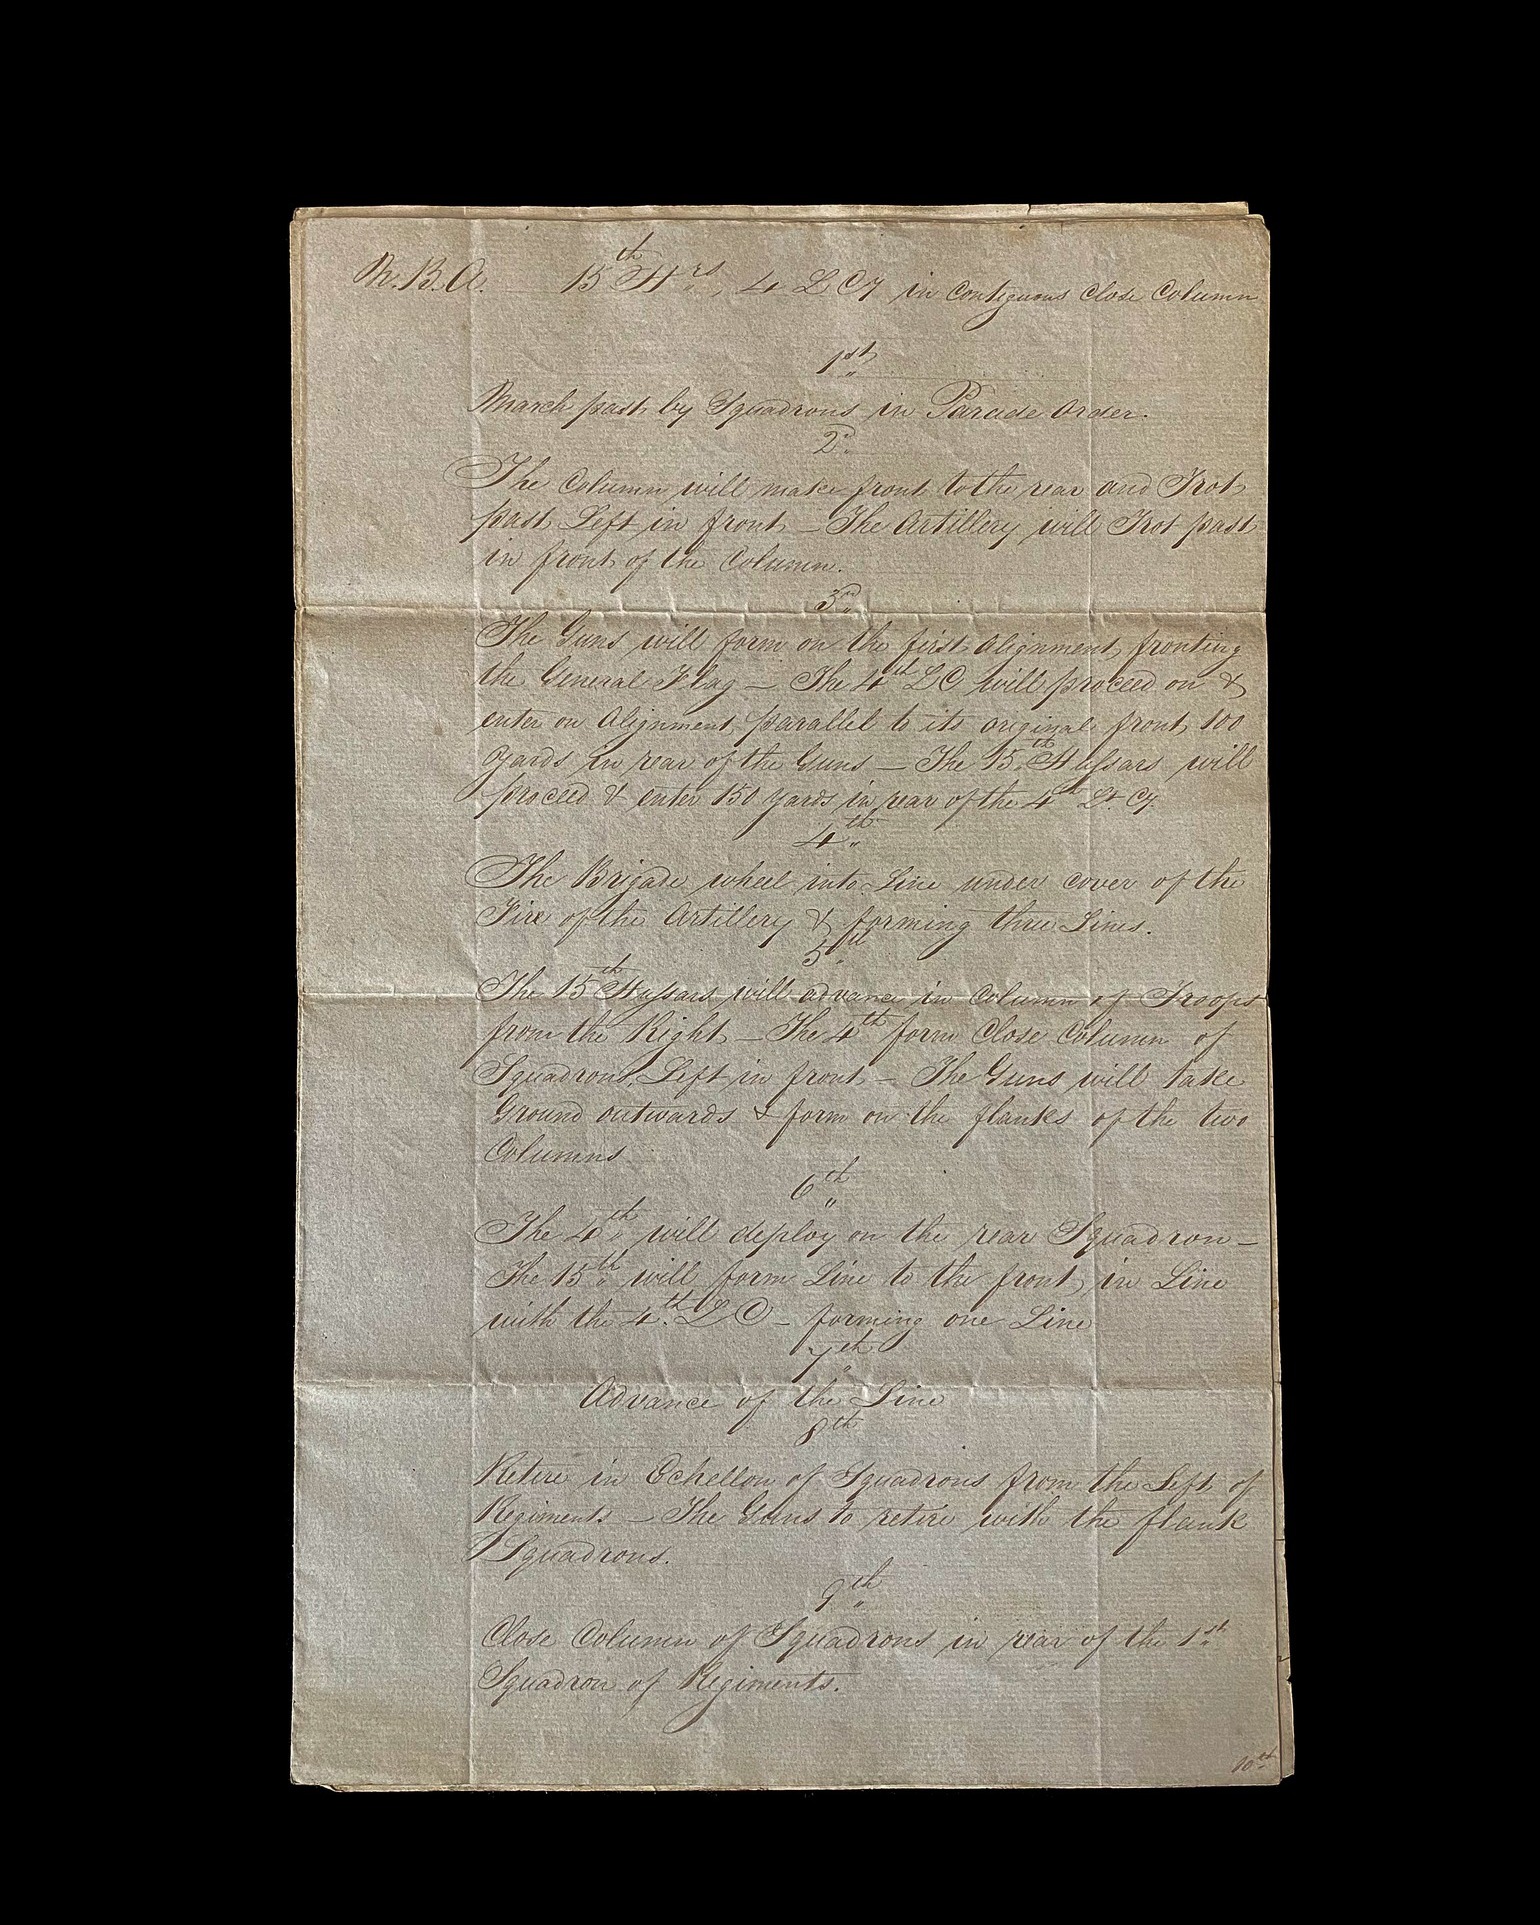 M. B. A. 15th Hrs, 4 L Cy in Contiguous Close Column
1st
March past by Squadrons in Parade Order.
2d
The Column will make front to the rear and Trot
past Left in front – The Artillery will Trot past
in front of the Column.
3rd
The Guns will form on the first Alignment fronting
the General Flag – The 4th L C will proceed on &
enter on Alignment parallel to its original front 100
yards in rear of the Guns – The 15th Hussars will
proceed & enter 150 yards in rear of the 4th Lt. Cy.
4th
The Brigade wheel into Line under cover of the
Fire of the Artillery & forming three Lines.
5th
The 15th Hussars will advance in Column of Troops
from the Right – The 4th form Close Column of
Squadrons Left in front – The Guns will take
Ground outwards & form on the flanks of the two
Columns
6th
The 4th will deploy on the rear Squadron –
The 15th will form Line to the front in Line
with the 4th L C – forming one Line
7th
Advance of the Line
8th
Retire in Echellon of Squadrons from the Left of
Regiments – The Guns to retire with the flank
Squadrons.
9th
Close Column of Squadrons in rear of the 1st
Squadron of Regiments.
10th